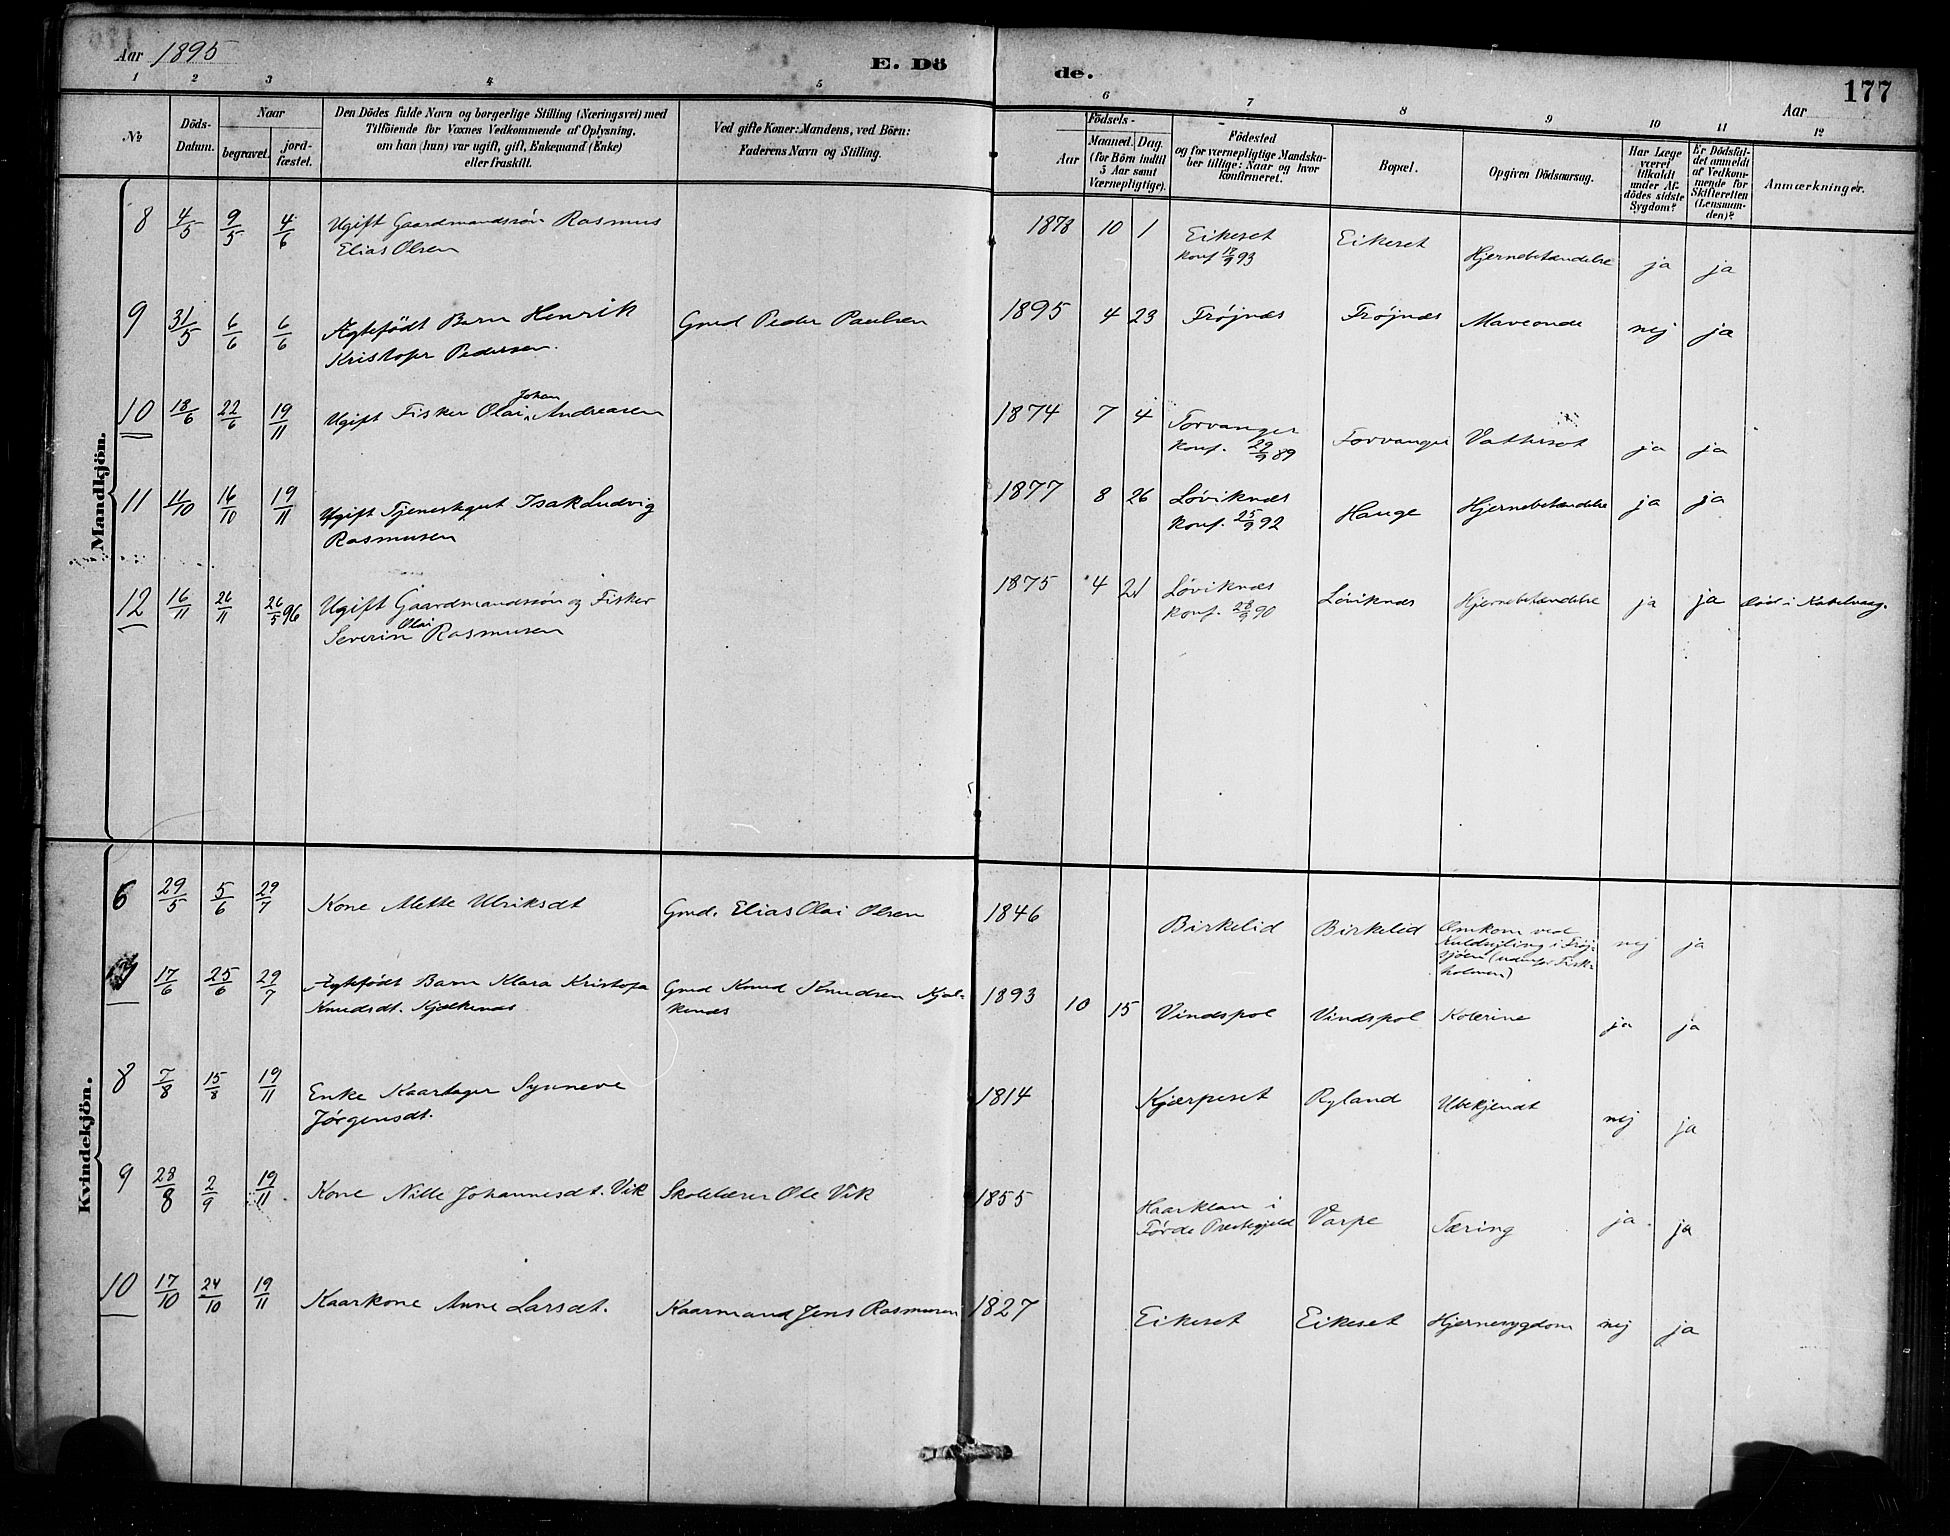 Aar 1895
E. Dö
de.
177
Aar
1 2 3 4 5 6 7 8 9 10 11 12
№
Döds-
Datum.
Naar
begravet.
jord-
fæstet.
Den Dödes fulde Navn og borgerlige Stilling (Næringsvei) med
Tilföiende for Voxnes Vedkommende af Oplysning,
om han (hun) var ugift, gift, Enkemand (Enke)
eller fraskilt.
Ved gifte Koner: Mandens, ved Börn:
Faderens Navn og Stilling.
Födsels-
Aar
Maaned. Dag.
(for Börn indtil
5 Aar samt
Værnepligtige).
Födested
og for værnepligtige Mandska-
ber tillige: Naar og hvor
konfirmeret.
Bopæl.
Opgiven Dödsaarsag.
Har Læge
været
tilkaldt
under Af-
dödes sidste
Sygdom?
Er Dödsfal-
det anmeldt
af Vedkom-
mende for
Skifteretten
(Lensman-
den)?
Anmærkninger.
Mandkjön.
8 4/5 9/5 4/6 Ugift Gaardmandssøn Rasmus
Elias Olsen
1878 10 1 Eikeset
konf. 17/9 93
Eikeset Hjernebetændelse ja ja
9 31/5 6/6 6/6 Ægtefödt Barn Henrik
Kristofer Pedersen.
Gmd Peder Paulsen 1895 4 23 Frøjnæs Frøjnæs Maveonde nej ja
10 18/6 22/6 19/11 Ugift Fisker Olai Johan Andreasen
1874 7 4 Torvanger
konf. 29/9 89
Torvanger Vattersot ja ja
11 11/10 16/10 19/11 Ugift Tjenestegut Isak Ludvig
Rasmusen
1877 8 26 Løviknæs
konf. 25/9 92
Hauge Hjernebetændelse ja ja
12 16/11 26/11 26/5 96 Ugift Gaardmandssøn og Fisker
Severin Olai Rasmusen
1875 4 21 Løviknæs
konf. 28/9 90
Løviknæs Hjernebetændelse ja ja Död i Kabelvaag.
Kvindekjön.
6 29/5 5/6 29/7 Kone Mette Ulriksdt Gmd. Elias Olai Olsen 1846 Birkelid Birkelid Omkom ved
Kuldsejling i Frøj-
sjøen (udenfor Fisk-
holmen)
nej ja
17/6 25/6 29/7 Ægtefödt Barn Klara Kristofa
Knudsdt. Kjølkenæs
Gmd Knud Knudsen Kjøl-
kenæs
1893 10 15 Vindspol Vindspol Kolerine ja ja
8 7/8 15/8 19/11 Enke Kaartager Synneve
Jørgensdt.
1814 Kjærpeset Ryland Ubekjendt nej ja
9 28/8 2/9 19/11 Kone Nille Johannesdt. Vik Skolelærer Ole Vik 1855 Haarklau i
Førde Præstegjeld
Varpe Tæring ja ja
10 17/10 24/10 19/11 Kaarkone Anne Larsdt. Kaarmand Jens Rasmusen 1827 Eikeset Eikeset Hjernesygdom nej ja